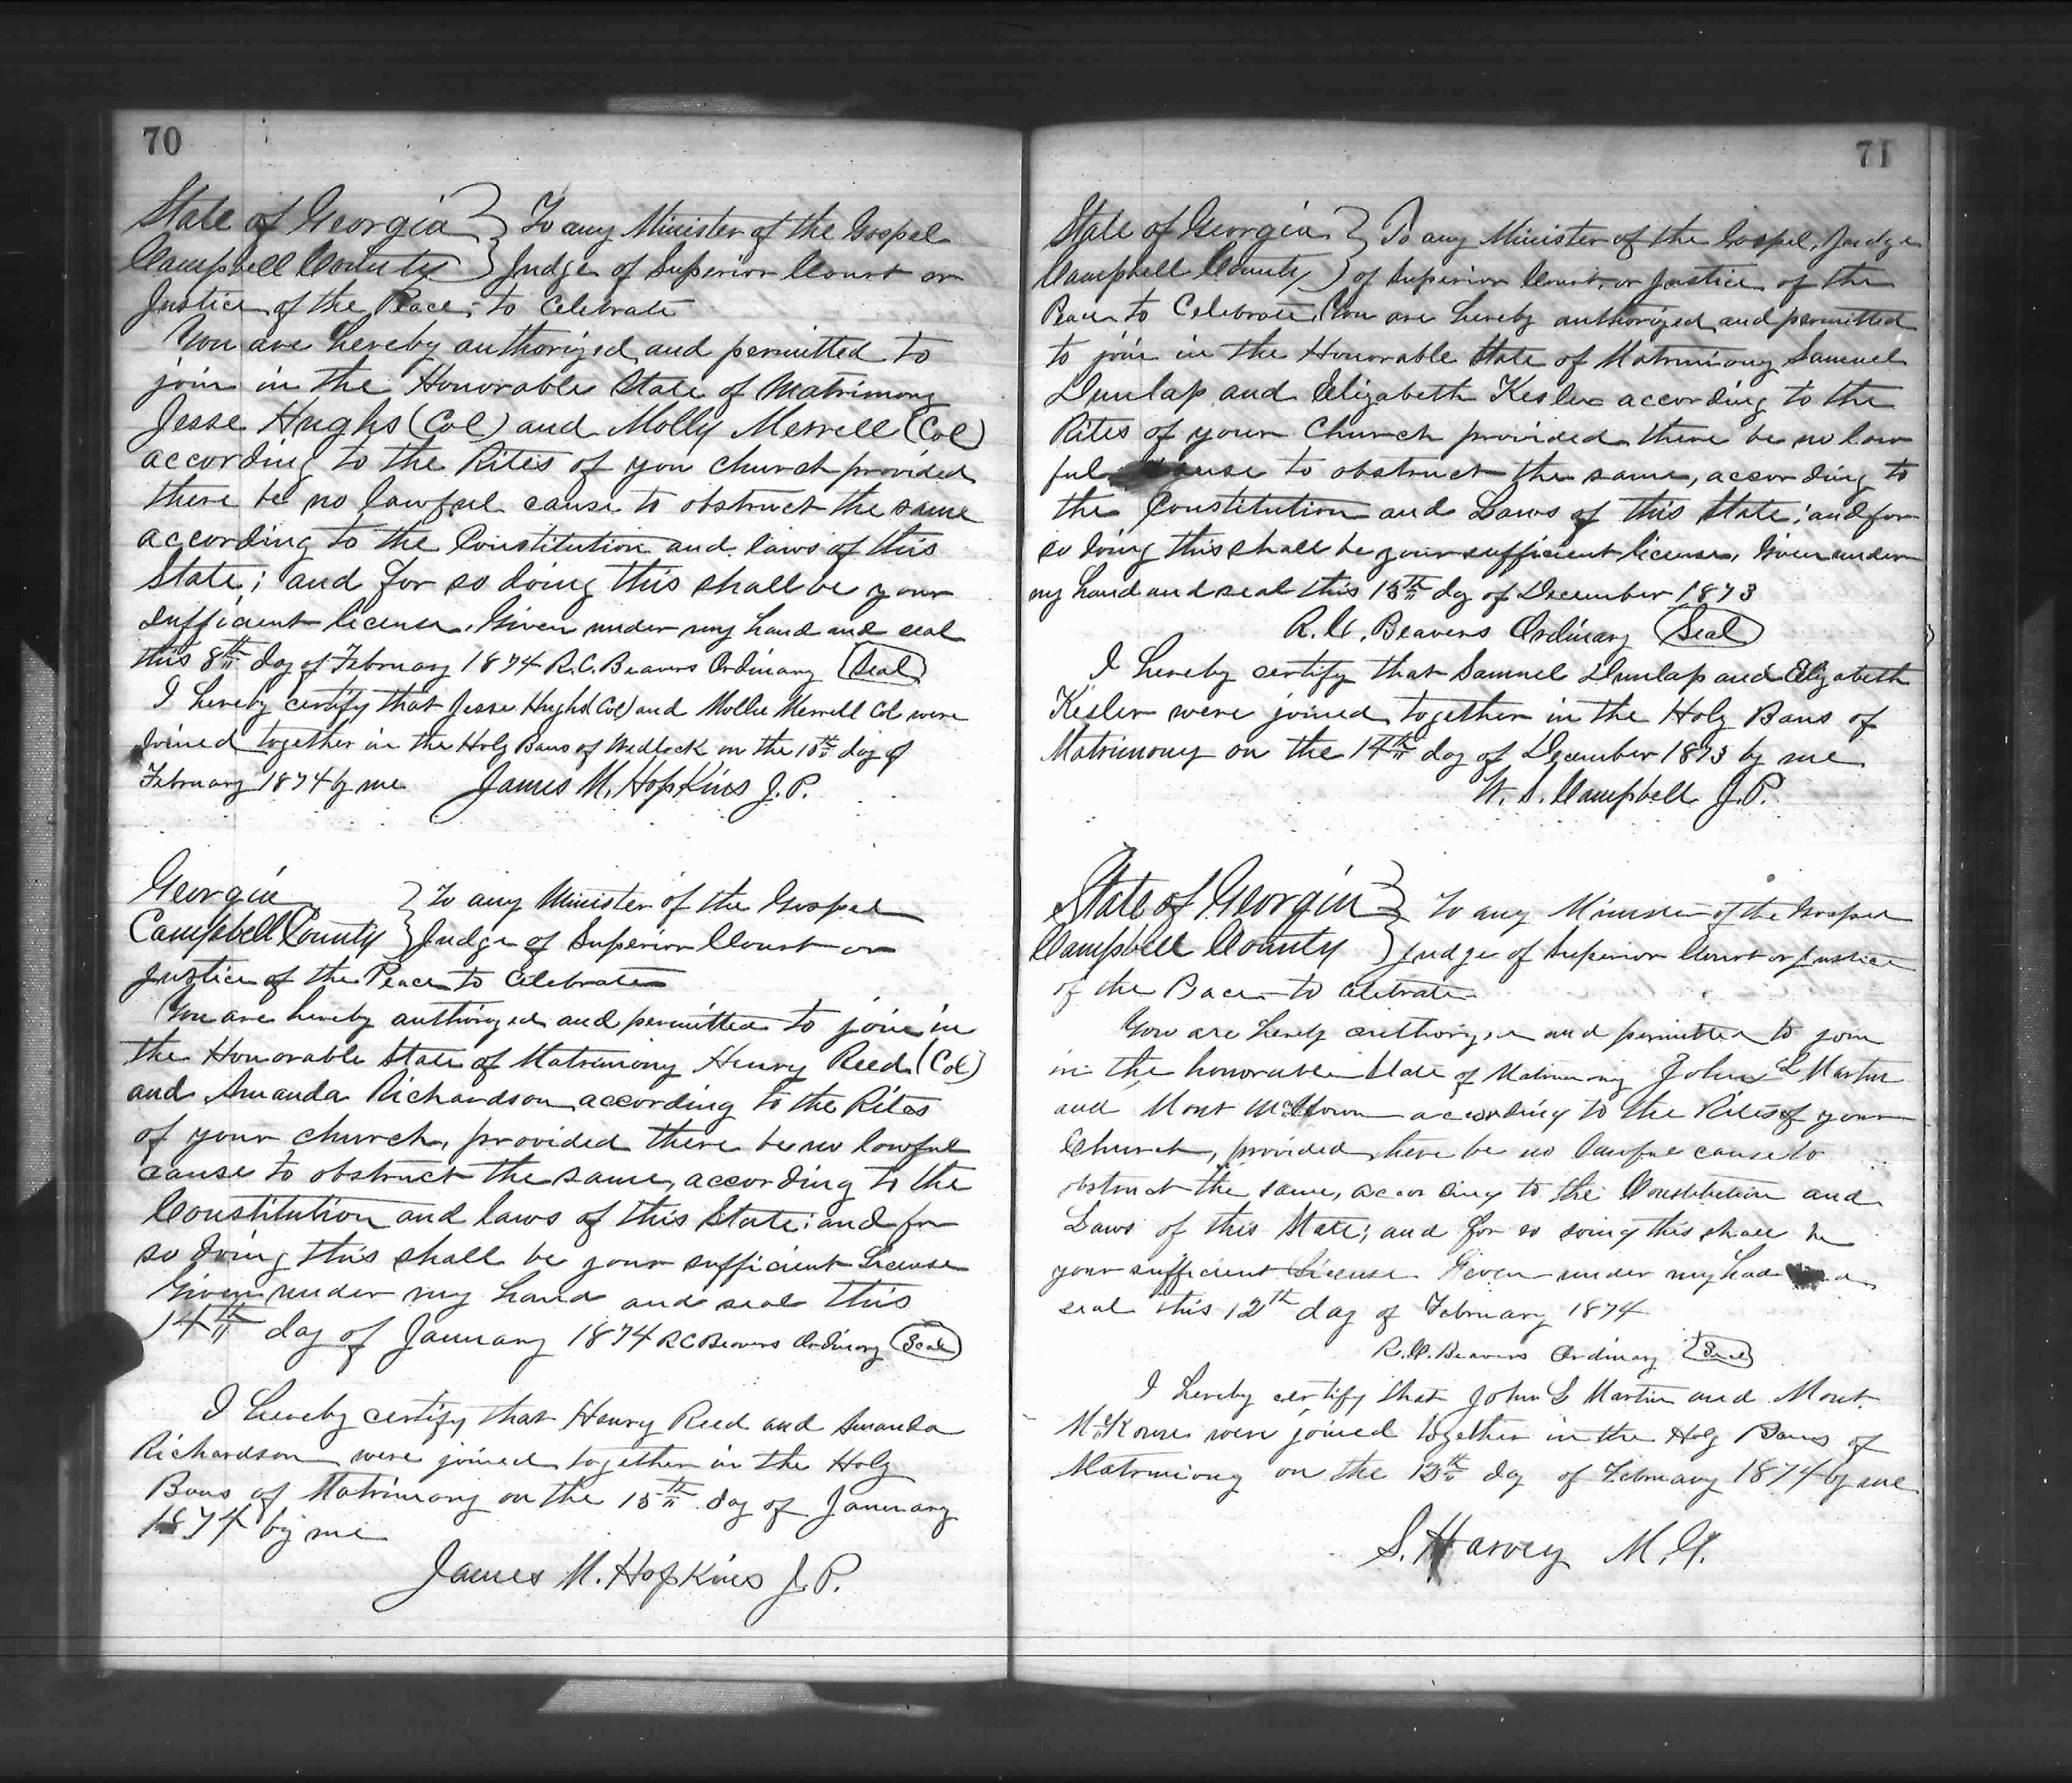 70
State of Georgia } To any Minister of the Gospel
Campbell County } Judge of Superior Court or
Justice of the Peace, to Celebrate
You are hereby authorized and permitted to
join in the Honorable State of Matrimony
Jesse Hughs (Col) and Molly Merrell (Col)
according to the Rites of you church provided
there be no lawful cause to obstruct the same
according to the Constitution and laws of this
State; and for so doing this shall be your
sufficient license. Given under my hand and seal
this 8th day of February 1874 R.C. Beavers Ordinary (Seal)
I hereby certify that Jesse Hughs (Col) and Mollie Merrell Col were
joined together in the Holy Bans of Wedlock on the 10th day of
February 1874 by me James M. Hopkins J.P.
Georgia } To any Minister of the Gospel
Campbell County } Judge of Superior Court or
Justice of the Peace to Celebrate
You are hereby authorized and permitted to join in
the Honorable State of Matrimony Henry Reed (Col)
and Amanda Richardson according to the Rites
of your church, provided there be no lawful
cause to obstruct the same, according to the
Constitution and laws of this State: and for
so doing this shall be your sufficient License
Given under my hand and seal this
14th day of January 1874 R C Beavers Ordinary (Seal)
I hereby certify that Henry Reed and Amanda
Richardson were joined together in the Holy
Bans of Matrimony on the 15th day of January
1874 by me
James M. Hopkins J.P.
71
State of Georgia } To any Minister of the Gospel, Judge
Campbell County } of Superior Court, or Justice of the
Peace to Celebrate. You are hereby authorized and permitted
to join in the Honorable State of Matrimony Samuel
Dunlap and Elizabeth Kesler according to the
Rites of your Church provided there be no law
ful cause to obstruct the same, according to
the Constitution and Laws of this State; and for
so doing this shall be your sufficient license. Given under
my hand and seal this 13th day of December 1873
R.C. Beavers Ordinary (Seal)
I hereby certify that Samuel Dunlap and Elizabeth
Kesler were joined together in the Holy Bans of
Matrimony on the 14th day of December 1873 by me
W. S. Campbell J.P.
State of Georgia } To any Minister of the Gospel
Campbell County } Judge of Superior Court or Justice
of the Peace to Celebrate
You are hereby authorized and permitted to join
in the honorable State of Matrimony John L Martin
and Mont according to the Rites of your
Church, provided there be no lawful cause to
obstruct the same, according to the Constitution and
Laws of this State; and for so doing this shall be
your sufficient License. Given under my hand
seal this 12th day of February 1874
R.C. Beavers Ordinary (Seal)
I hereby certify that John L Martin and Mont
were joined together in the Holy Bans of
Matrimony on the 13th day of February 1874 by me
S. Harvey M.G.